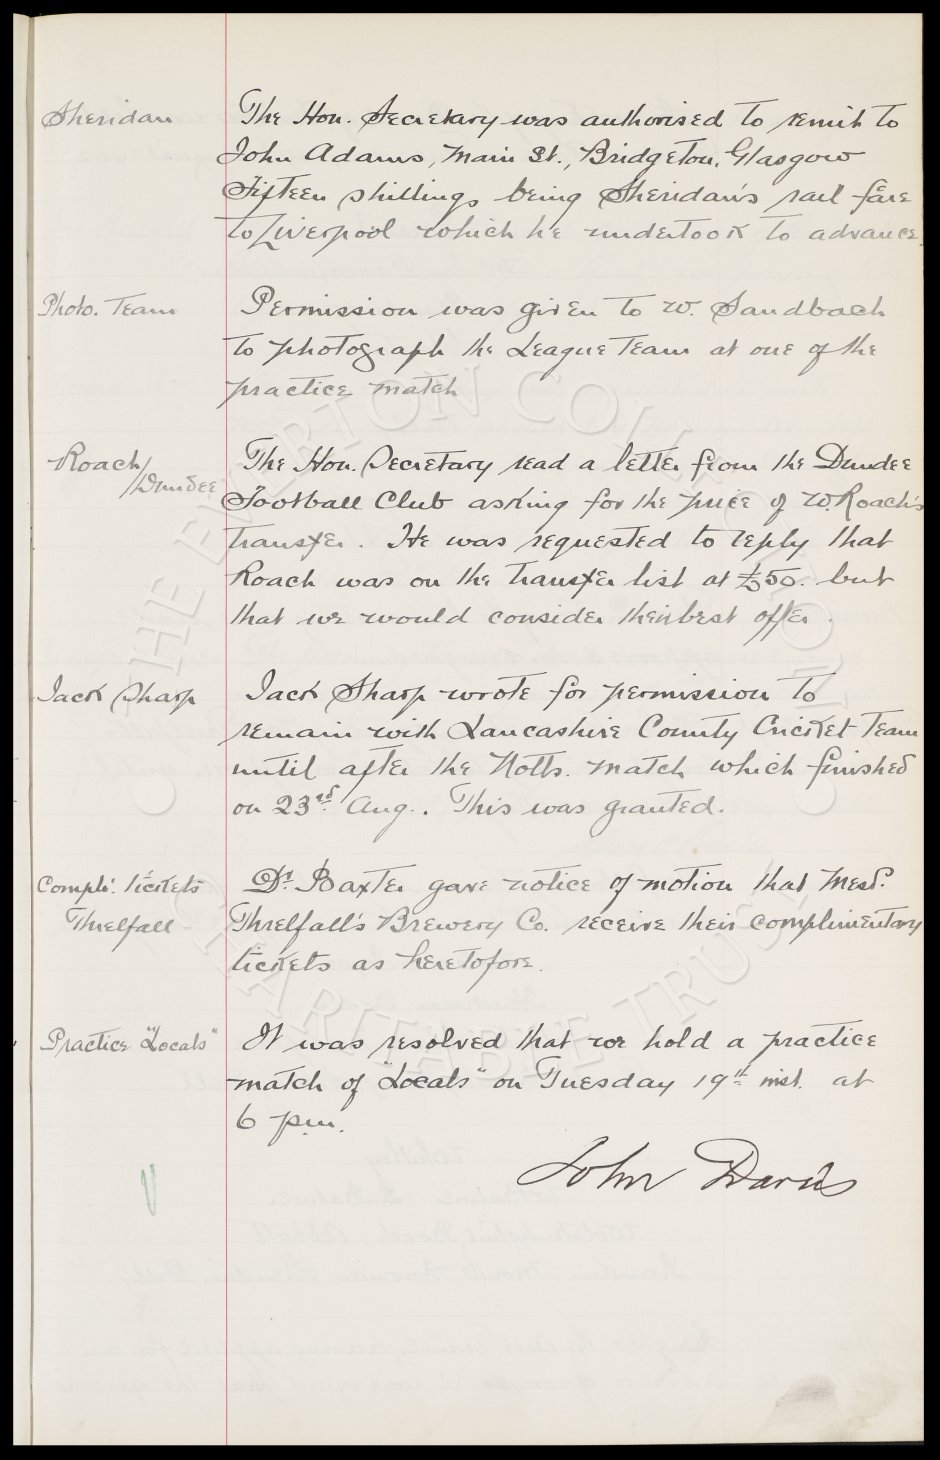 Sheridan
The Hon. Secretary was authorised to remit to
John Adams, Main St., Bridgeton, Glasgow
Fifteen shillings being Sheridan's rail fare
to Liverpool which he undertook to advance.
Photo. Team
Permission was given to W. Sandbach
to photograph the League Team at one of the
practice match
Roach/Dundee
The Hon. Secretary read a letter from the Dundee
Football Club asking for the price of W. Roach's
transfer. He was requested to reply that
Roach was on the Transfer list at £50. but
that we would consider their best offer.
Jack Sharp
Jack Sharp wrote for permission to
remain with Lancashire County Cricket Team
until after the Notts. match which finished
on 23rd Aug. This was granted.
Compli. tickets
Threlfall
Dr. Baxter gave notice of motion that Messrs.
Threlfall's Brewery Co. receive their complimentary
tickets as heretofore.
Practice "Locals"
It was resolved that we hold a practice
match of "Locals" on Tuesday 19th inst. at
6 p.m.
John Davis
THE EVERTON COLLECTION
CHARITABLE TRUST